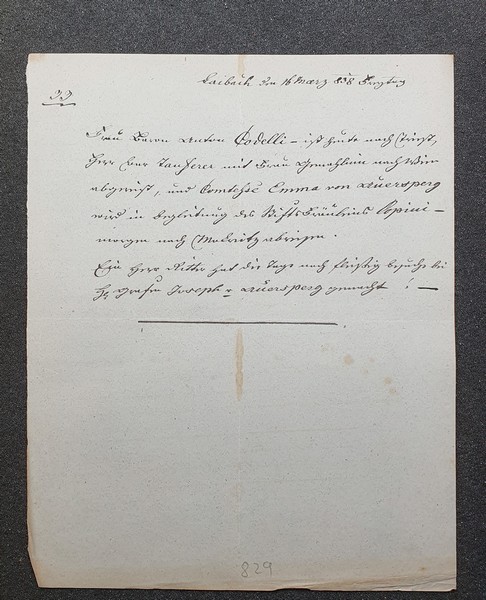 Laibach, den 16 März 838 Freytag
33
Frau Baron Anton Codelli – ist heute nach Triest,
Herr Baron Tauferer mit Frau Gemahlinn nach Wien
abgereist, und Comtesse Emma von Auersperg
wird in Begleitung des Stifts Fräuleins Copini –
morgen nach Mokritz abreisen.
Ein Herr Ritter hat die Tage noch fleißig besuche bei
H: Grafen Joseph v Auersperg gemacht ! —
829